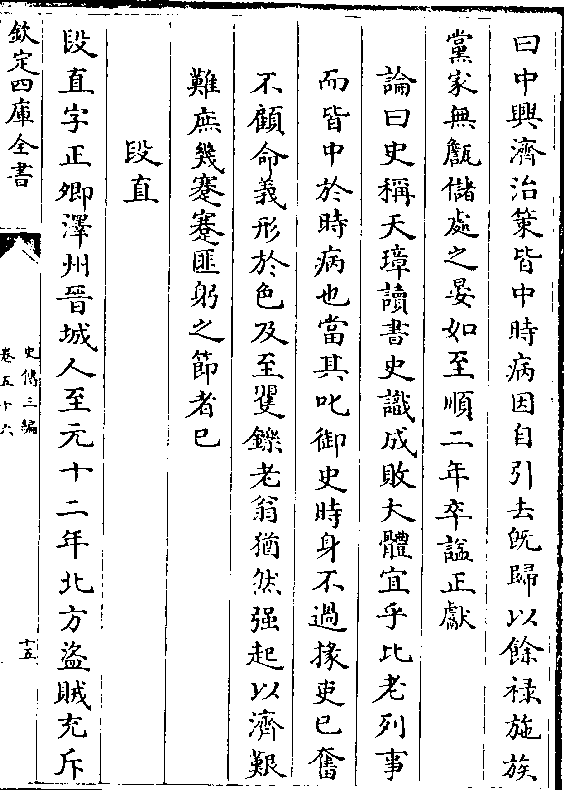 曰中興濟治策皆中時病因自引去既歸以餘禄施族
黨家無甔儲處之晏如至順二年卒諡正獻
論曰史稱天璋讀書史識成敗大體宜乎比老列事
而皆中於時病也當其叱御史時身不過掾吏已奮
不顧命義形於色及至矍鑠老翁猶然强起以濟艱
難庶幾蹇蹇匪躬之節者已
段直
段直字正卿澤州晉城人至元十二年北方盜賊充斥
欽定四庫全書
史傳三編
卷五十六
十五